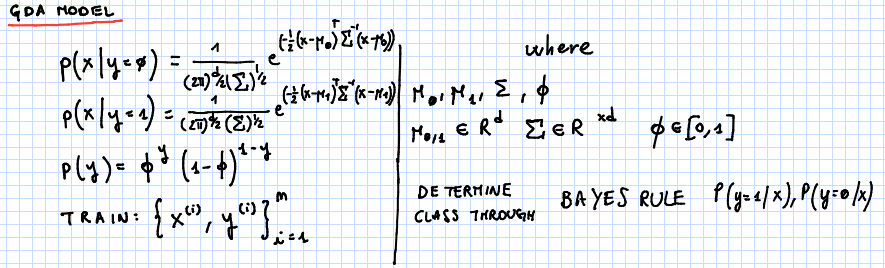 GDA MODEL
p(x|y=0) = 1/((2π)^(d/2) (Σ)^(1/2)) e^(-1/2 (x-μ₀)^T Σ^(-1) (x-μ₀))
p(x|y=1) = 1/((2π)^(d/2) (Σ)^(1/2)) e^(-1/2 (x-μ₁)^T Σ^(-1) (x-μ₁))
p(y) = ϕ^y (1-ϕ)^(1-y)
TRAIN: {x^(i), y^(i)}_(i=1)^m
where
μ₀, μ₁, Σ, ϕ
μ₀,₁ ∈ R^d Σ ∈ R^(xd) ϕ ∈ [0,1]
DETERMINE
CLASS THROUGH BAYES RULE P(y=1/x), P(y=0/x)